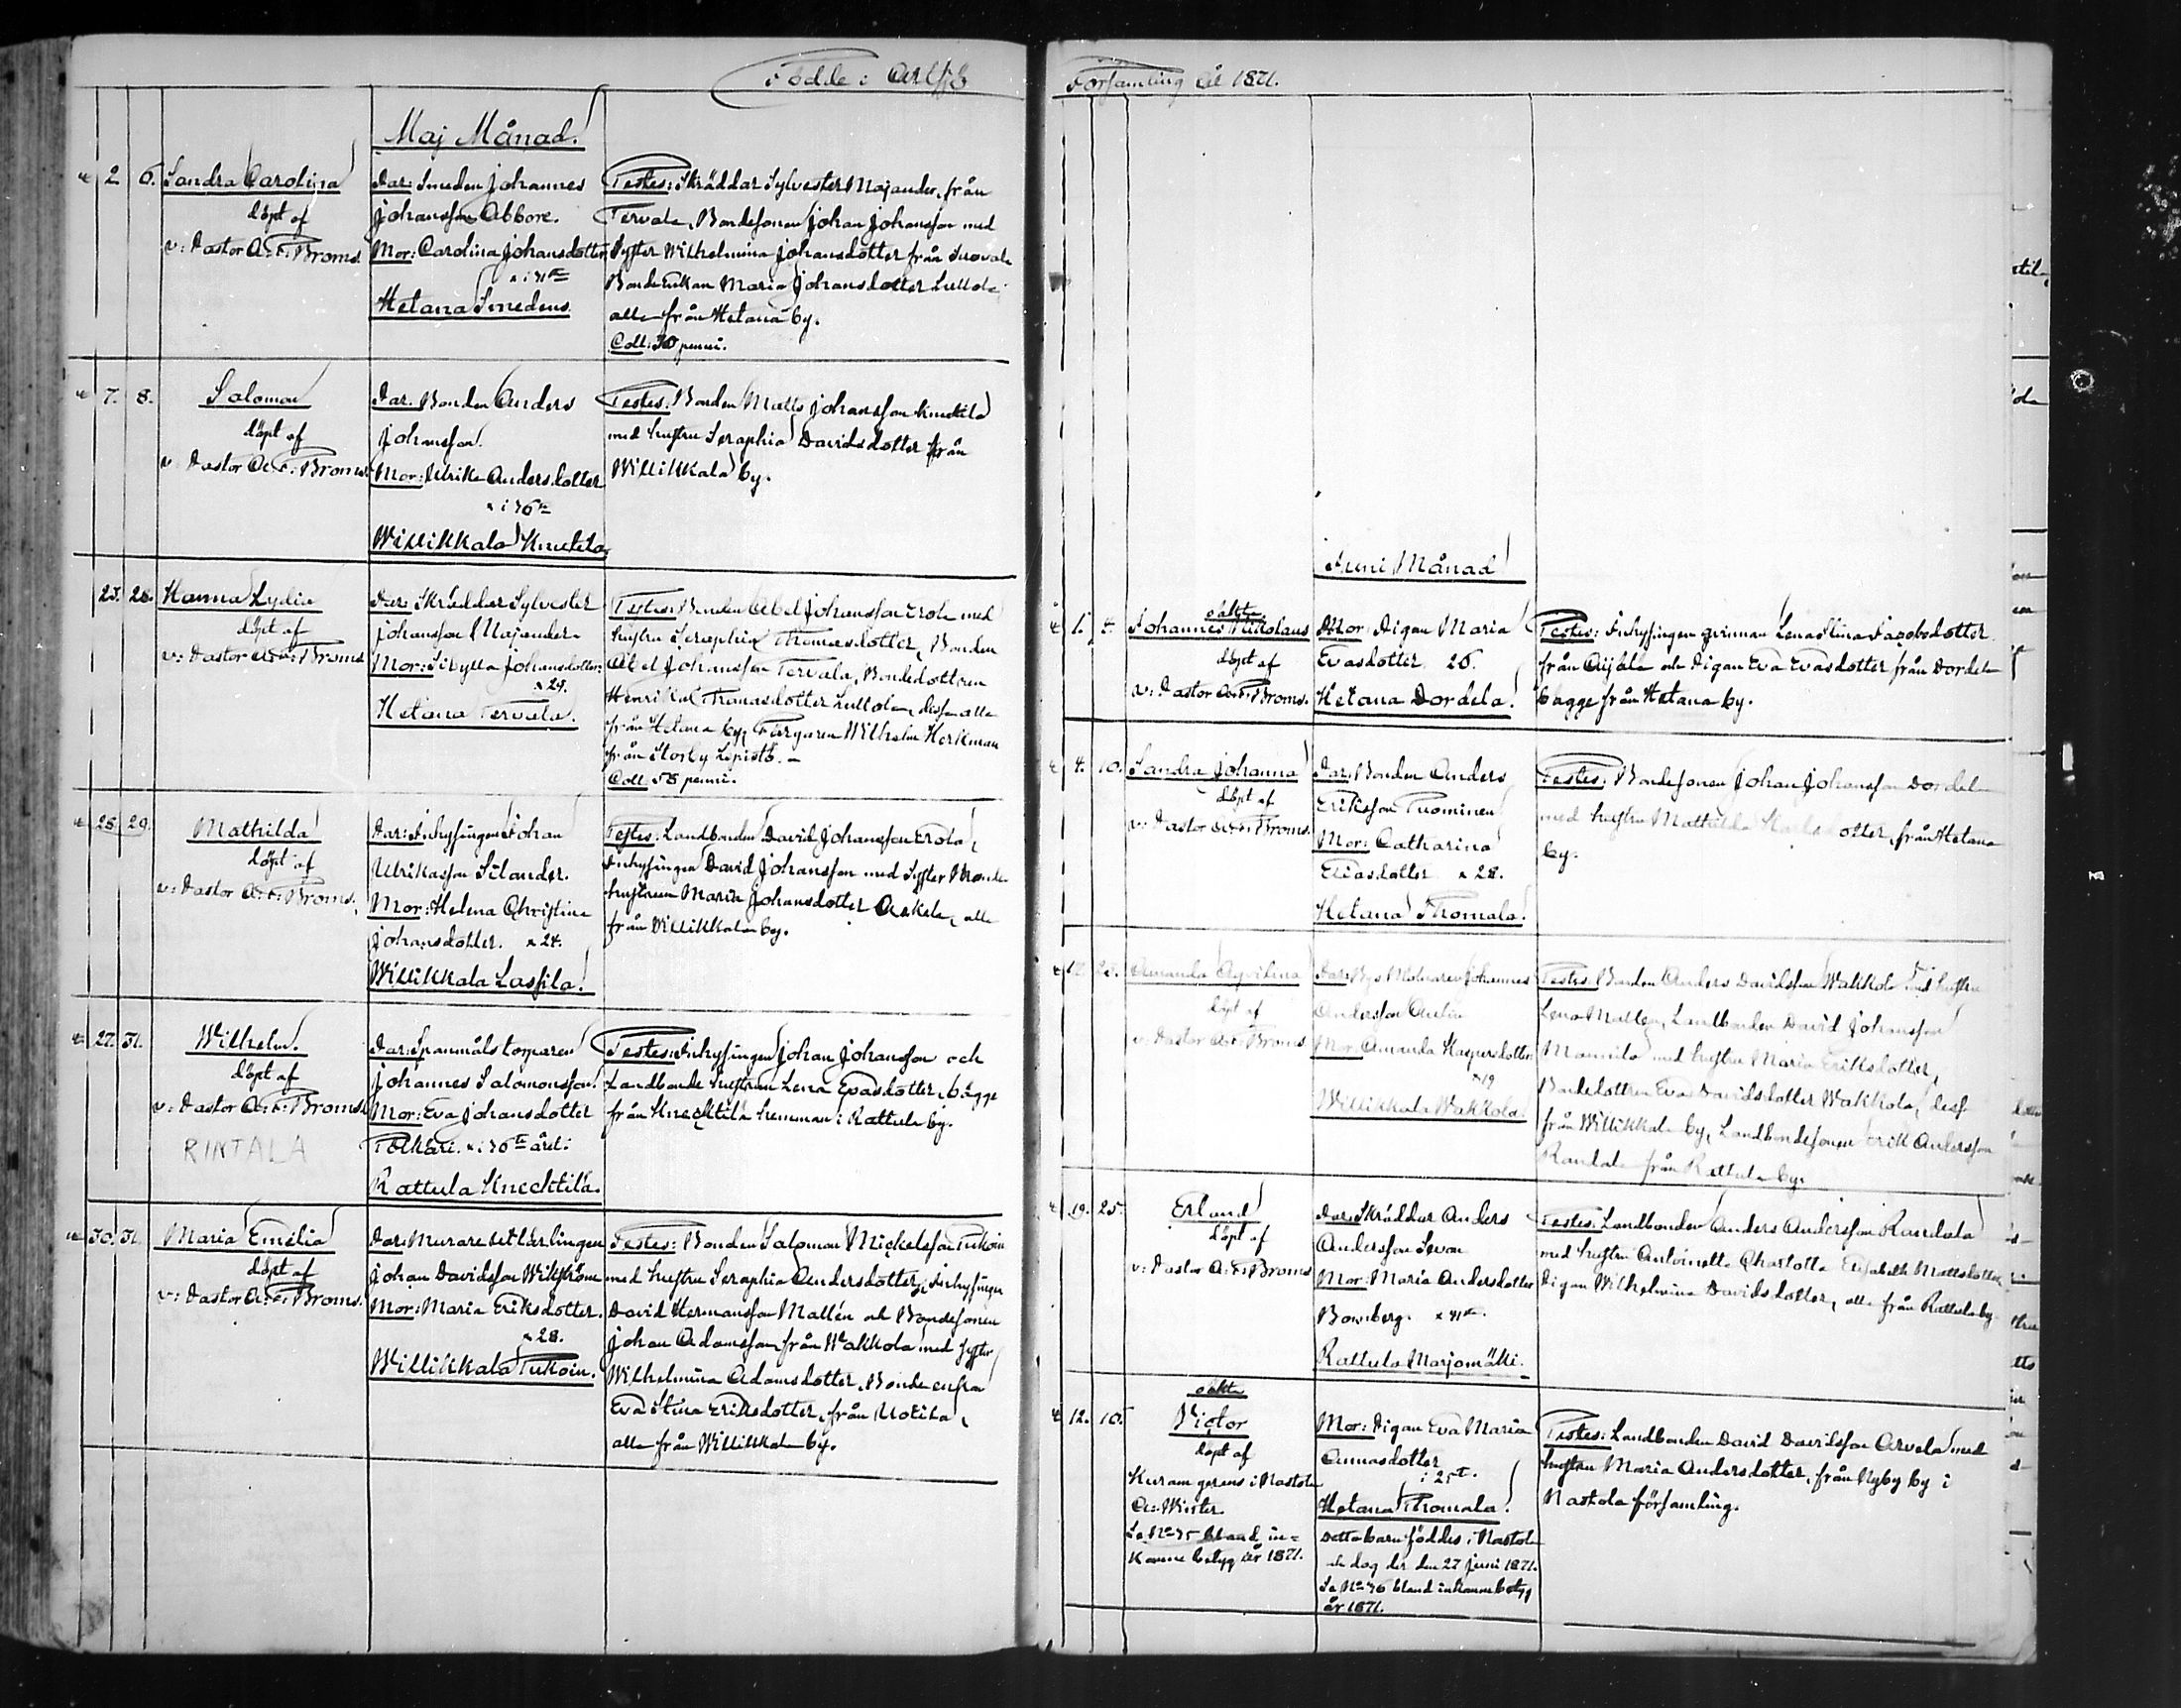 Födde i
Församling år 1871.
Maj Månad.
2 6. Sandra Carolina
döpt af
v: Pastor A: F: Broms.
Par: Smeden Johannes
Johansson Abbore.
Mor: Carolina Johansdotter
x i 41te
Hetana Smedens
Testes: Skräddar Sylvester Majander, från
Tervala, Bondesonen Johan Johansson med
Syster Wilhelmina Johansdotter från
Maria Johansdotter
alla från Hetana by.
Coll: penni.
7. 8. Salomon
döpt af
v: Pastor A: F: Broms
Par. Bonden Anders
Johansson.
Mor: Ulrika Andersdotter
x i 36te
Willikkala Knuutila
Testes: Bonden Matts Johansson Knuutila
med hustru Seraphia Davidsdotter från
Willikkala by.
23. 28. Hanna Lydia
döpt af
v: Pastor A: F: Broms
Par: Skräddar Sylvester
Johansson Majander
Mor: Sibylla Johansdotter
x 29.
Hetana Tervala.
Testes: Bonden Abel Johansson Erola med
hustru Seraphia Thomasdotter, Bonden
Abel Johansson Tervala, Bondedottren
Henrika Thomasdotter dessa alla
från Hetana by, Färgaren Wilhelm Herkman
från Storby Lepistö. –
Coll: 58 penni.
28. 29. Mathilda
döpt af
v: Pastor A: F: Broms.
Par: Inhysingen Johan
Ulrikasson Silander.
Mor: Helena Christina
Johansdotter. x 24.
Willikkala Lassila.
Testes: Landbonden David Johansson Erola,
Inhysingen David Johansson med Syster Bonde
hustrun Maria Johansdotter Arkela, alla
från Willikkala by.
27. 31. Wilhelm.
döpt af
v: Pastor A: F: Broms.
RINTALA
Par: Spanmåls torparen
Johannes Salomonsson.
Mor: Eva Johansdotter
Tolkari. x i 30te året:
Rattula Knecktilä.
Testes: Inhysingen Johan Johansson och
Landbonde hustrun Lena Evasdotter, bägge
från Knecktilä hemman i Rattula by.
30. 31. Maria Emelia
döpt af
v: Pastor A: F: Broms.
Par: Murare
Johan Davidsson Wikström
Mor: Maria Eriksdotter.
x 28.
Willikkala Tukoin.
Testes: Bonden Salomon Mickelsson Tukoin
med hustru Seraphia Andersdotter, Inhysingen
David Hermansson Mallén och Bondesonen
Johan Adamsson från Wakkola med syster
Wilhelmina Adamsdotter, Bonde enkan
Eva Stina Eriksdotter, från Uotila,
alla från Willikkala by.
Juni Månad
1. 4. oäkta
Johannes Nikolaus
döpt af
v: Pastor A: F: Broms.
Mor: Pigan Maria
Evasdotter 26.
Hetana Pordela.
Testes: Inhysingen qvinnan Lena Stina Jacobsdotter
från och Pigan Eva Evasdotter från Pordela
bägge från Hetana by.
4. 10. Sandra Johanna
döpt af
v: Pastor A: F: Broms.
Par: Bonden Anders
Eriksson Tuominen
Mor: Catharina
Eliasdotter x 28.
Hetana Thomala.
Testes: Bondesonen Johan Johansson Pordela
med hustru Mathilda från Hetana
by.
12. Amanda Aqvilina
döpt af
v: Pastor A: F: Broms
Par: Bys Mölnaren Johannes
Andersson
Mor: Amanda Kaspersdotter
x 19
Willikkala Wakkola.
Testes: Bonden Anders Davidsson Wakkola med hustru
Lena Mallen, Landbonden David Johansson
Mannila med hustru Maria Eriksdotter,
Bondedottren Eva Davidsdotter Wakkola, dessa
från Willikkala by, Landbondesonen Erik Andersson
från Rattula by.
19. 25. Erland
döpt af
v: Pastor A: F: Broms
Par: Skräddar Anders
Andersson
Mor: Maria Andersdotter
x 41te.
Rattula Marjomäki.
Testes: Landbonden Anders Andersson
med hustru Antoinetta Charlotta Elisabeth Mattsdotter
Pigan Wilhelmina Davidsdotter, alla från Rattula by.
12. 16. oäkta
Victor
döpt af
i Nastola
A: Winter
bland in-
komne betyg år 1871.
Mor: Pigan Eva Maria
Annasdotter
i 25te.
Hetana Thomala.
Detta barn föddes i Nastola
och dog der den 27 Juni 1871.
Se No 76 bland inkomne betyg
år 1871.
Testes: Landbonden David Davidsson Arvela med
hustru Maria Andersdotter, från Nyby by i
Nastola församling.